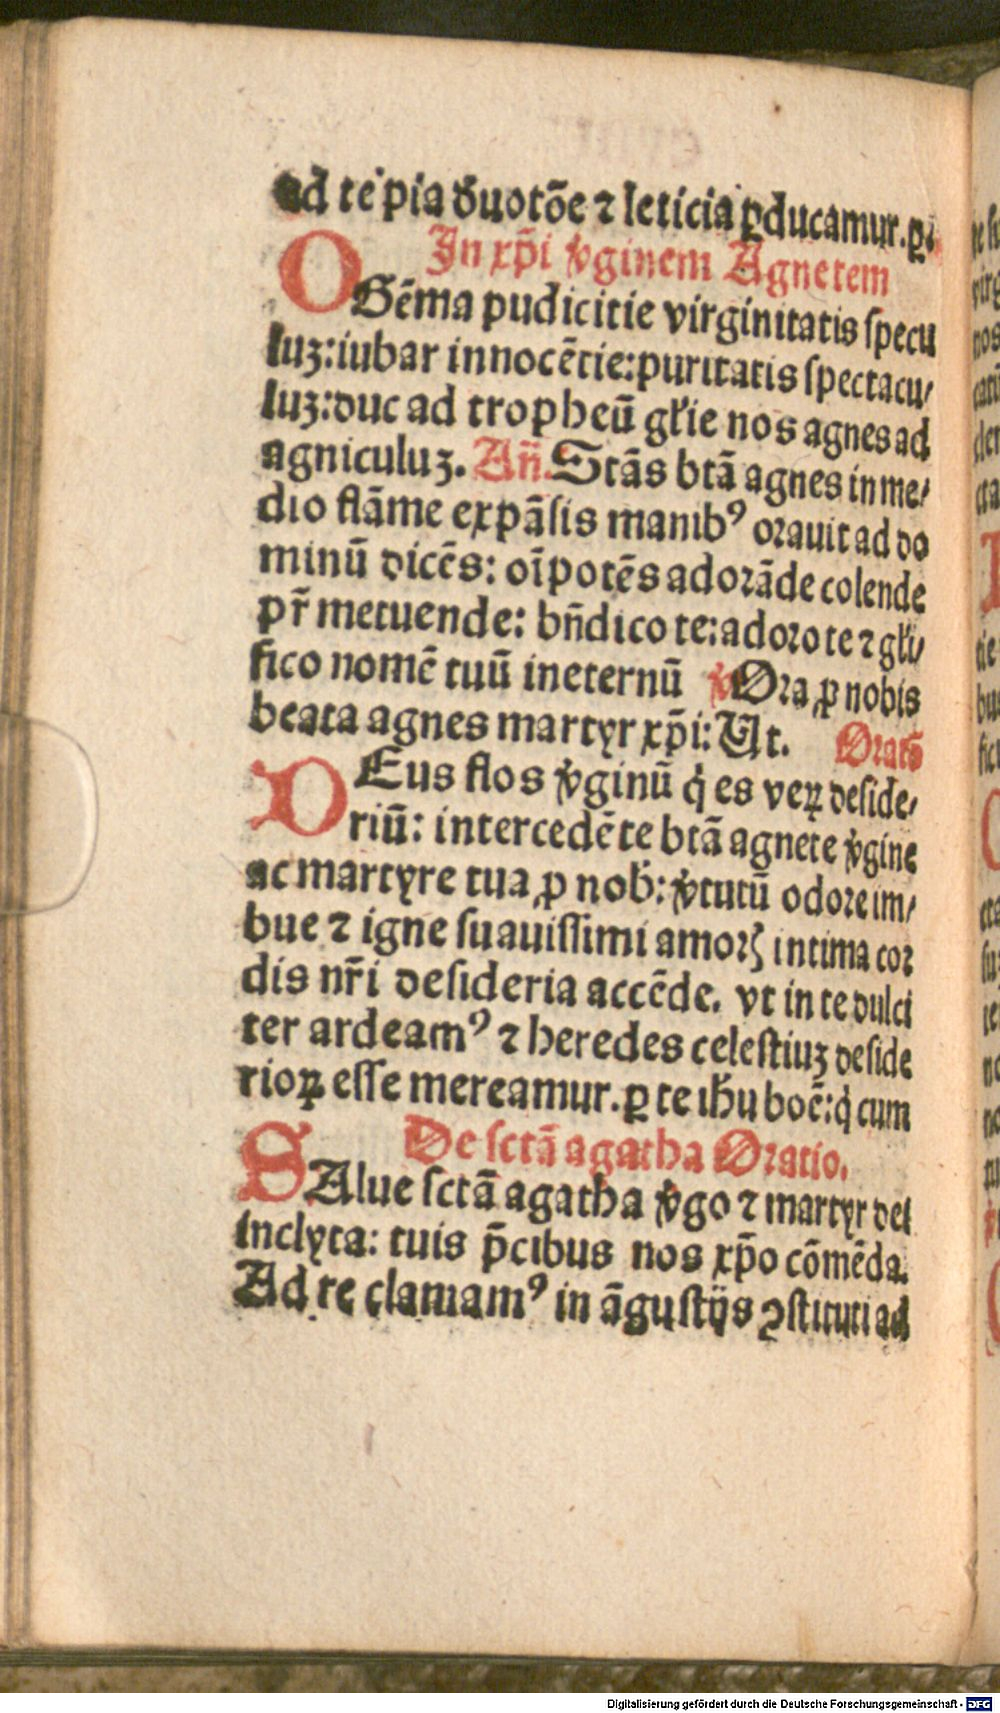 ad te pia deuotõe ⁊ leticia ꝑducamur. ꝑ
In xp̃i v̾ginem Agnetem
O Gẽma pudicitie virginitatis specu
luʒ: iubar innocẽtie: puritatis spectacu/
luʒ: duc ad tropheũ gl̃ie nos agnes ad
agniculuʒ. Añ. Stãs btã agnes in me/
dio flãme expãsis manibꝰ orauit ad do
minũ dicẽs: oĩpotẽs adorãde colende
pr̃ metuende: bñdico te: adoro te ⁊ gl̃i/
fico nomẽ tuũ in eternũ ℣ Ora ꝓ nobis
beata agnes martyr xp̃i: Ut. Oratõ
DEus flos v̾ginũ q̇ es veꝝ deside/
riũ: intercedẽte btã agnete v̾gine
ac martyre tua ꝓ nob: v̾tutũ odore im/
bue ⁊ igne suauissimi amorꝭ intima cor
dis nr̃i desideria accẽde. vt in te dulci
ter ardeamꝰ ⁊ heredes celestiuʒ deside
rioꝝ esse mereamur. ꝑ te ihu boẽ: q̇ cum
De sctã agatha Oratio.
SAlue sctã agatha v̾go ⁊ martyr dei
inclyta: tuis p̃cibus nos xp̃o cõmẽda.
Ad te clamamꝰ in ãgustijs ꝯstituti ad
Digitalisierung gefördert durch die Deutsche Forschungsgemeinschaft - DFG